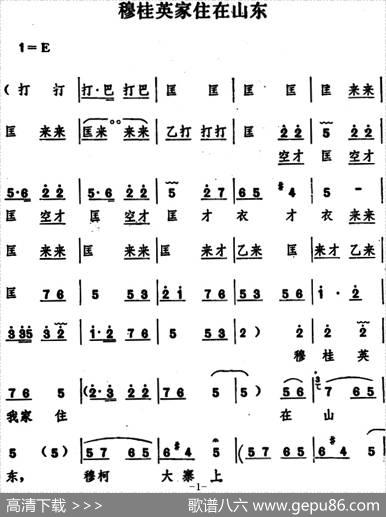 穆桂英家住在山东
1=E
(打 打 打·巴 打巴 匡 匡 匡 匡 匡 来来
匡 来来 匡来 来来 乙打 打打 匡 2 2 5 2 2
空才 匡 空才
5·6 2 2 5·6 2 2 5 2 7 6 5 #4 5 -
匡 空才 匡 空才 匡 才 衣 才 衣 来来
匡 来来 匡 来来 匡 来才 乙来 匡 来才 乙来
匡 7 6 5 5 3 2 1 7 6 5 6 5 6 1 · 2
3 3 5 3 2 1·2 7 6 5 5 3 5 2) 2 2 2
穆 桂 英
7 6 5 (2·3 2 2 7 6 5 5) 5 6 7 6 5
我家 住 在 山
5 (5) 5 7 6 5 6 #4 5 (5 7 6 5 6 #4 5)
东, 穆柯 大寨上
-1-
高清下载 >>>
歌谱八六 www.gepu86.com